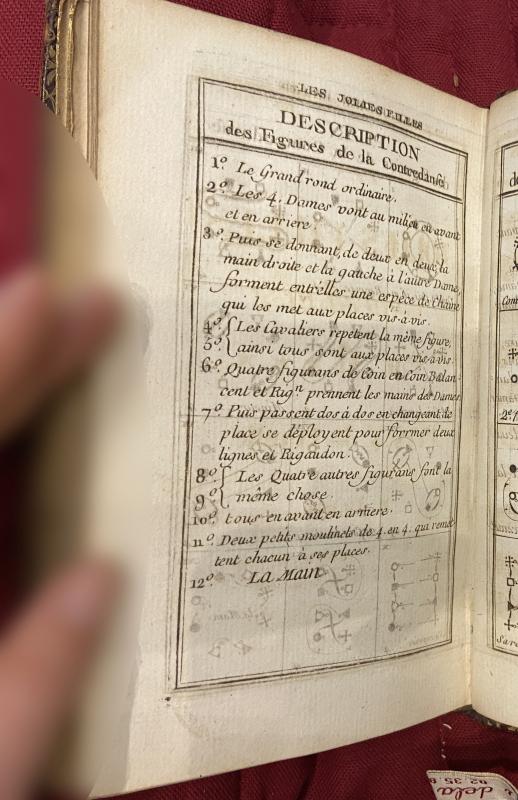 LES JOLIES FILLES
DESCRIPTION
des Figures de la Contredanse
1º. Le Grand rond ordinaire.
2º. Les 4. Dames vont au milieu en avant
et en arriere.
3º. Puis se donnant, de deux en deux, la
main droite et la gauche à l'autre Dame,
forment entr'elles une espèce de Chaine
qui les met aux places vis-à-vis.
4º. { Les Cavaliers repetent la même figure,
5º. { ainsi tous sont aux places vis-à-vis.
6º. Quatre figurans de Coin en Coin Balan-
cent et Rigⁿ. prennent les mains des Dames
7º. Puis passent dos à dos en changeant de
place se déployent pour formmer deux
lignes et Rigaudon.
8º. { Les Quatre autres figurans font la
9º. { même chose.
10º. tous en avant en arriere.
11º. Deux petits moulinets de 4. en 4. qui remet-
tent chacun à ses places.
12º. La Main
dela